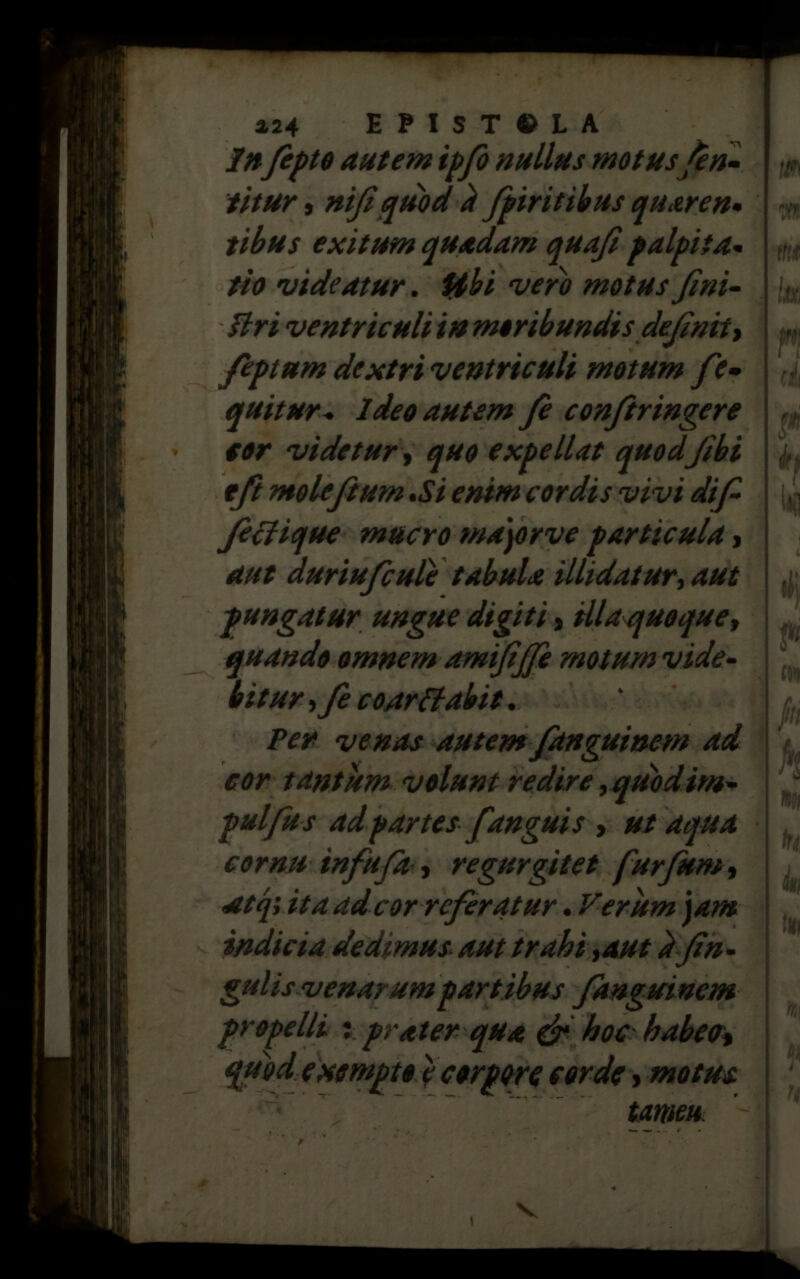 224 EPISTOLA
In ſepto autem ipſo nullus motus ſen-
titur, niſi quòd à ſpiritibus quæren-
tibus exitum quædam quaſi palpita-
tio videatur. Ubi verò motus ſini-
ſtri ventriculi in moribundis deſinit,
ſeptum dextri ventriculi motum ſe-
quitur. Ideo autem ſe conſtringere
cor videtur, quo expellat quod ſibi
eſt moleſtum. Si enim cordis vivi diſ-
ſectique mucro majorve particula,
aut duriuſculè tabulæ illidatur, aut
pungatur ungue digiti, illa quoque,
quando omnem amiſiſſe motum vide-
bitur, ſe coarctabit.
Per venas autem ſanguinem ad
cor tantùm volunt redire, quòd im-
pulſus ad partes ſanguis, ut aqua
cornu infuſa, regurgitet ſurſum,
atq; ita ad cor referatur. Verùm jam
indicia dedimus aut trahi, aut à ſin-
gulis venarum partibus ſanguinem
propelli: præter quæ & hoc habeo,
quòd exempto è corpore corde, motus
tamen